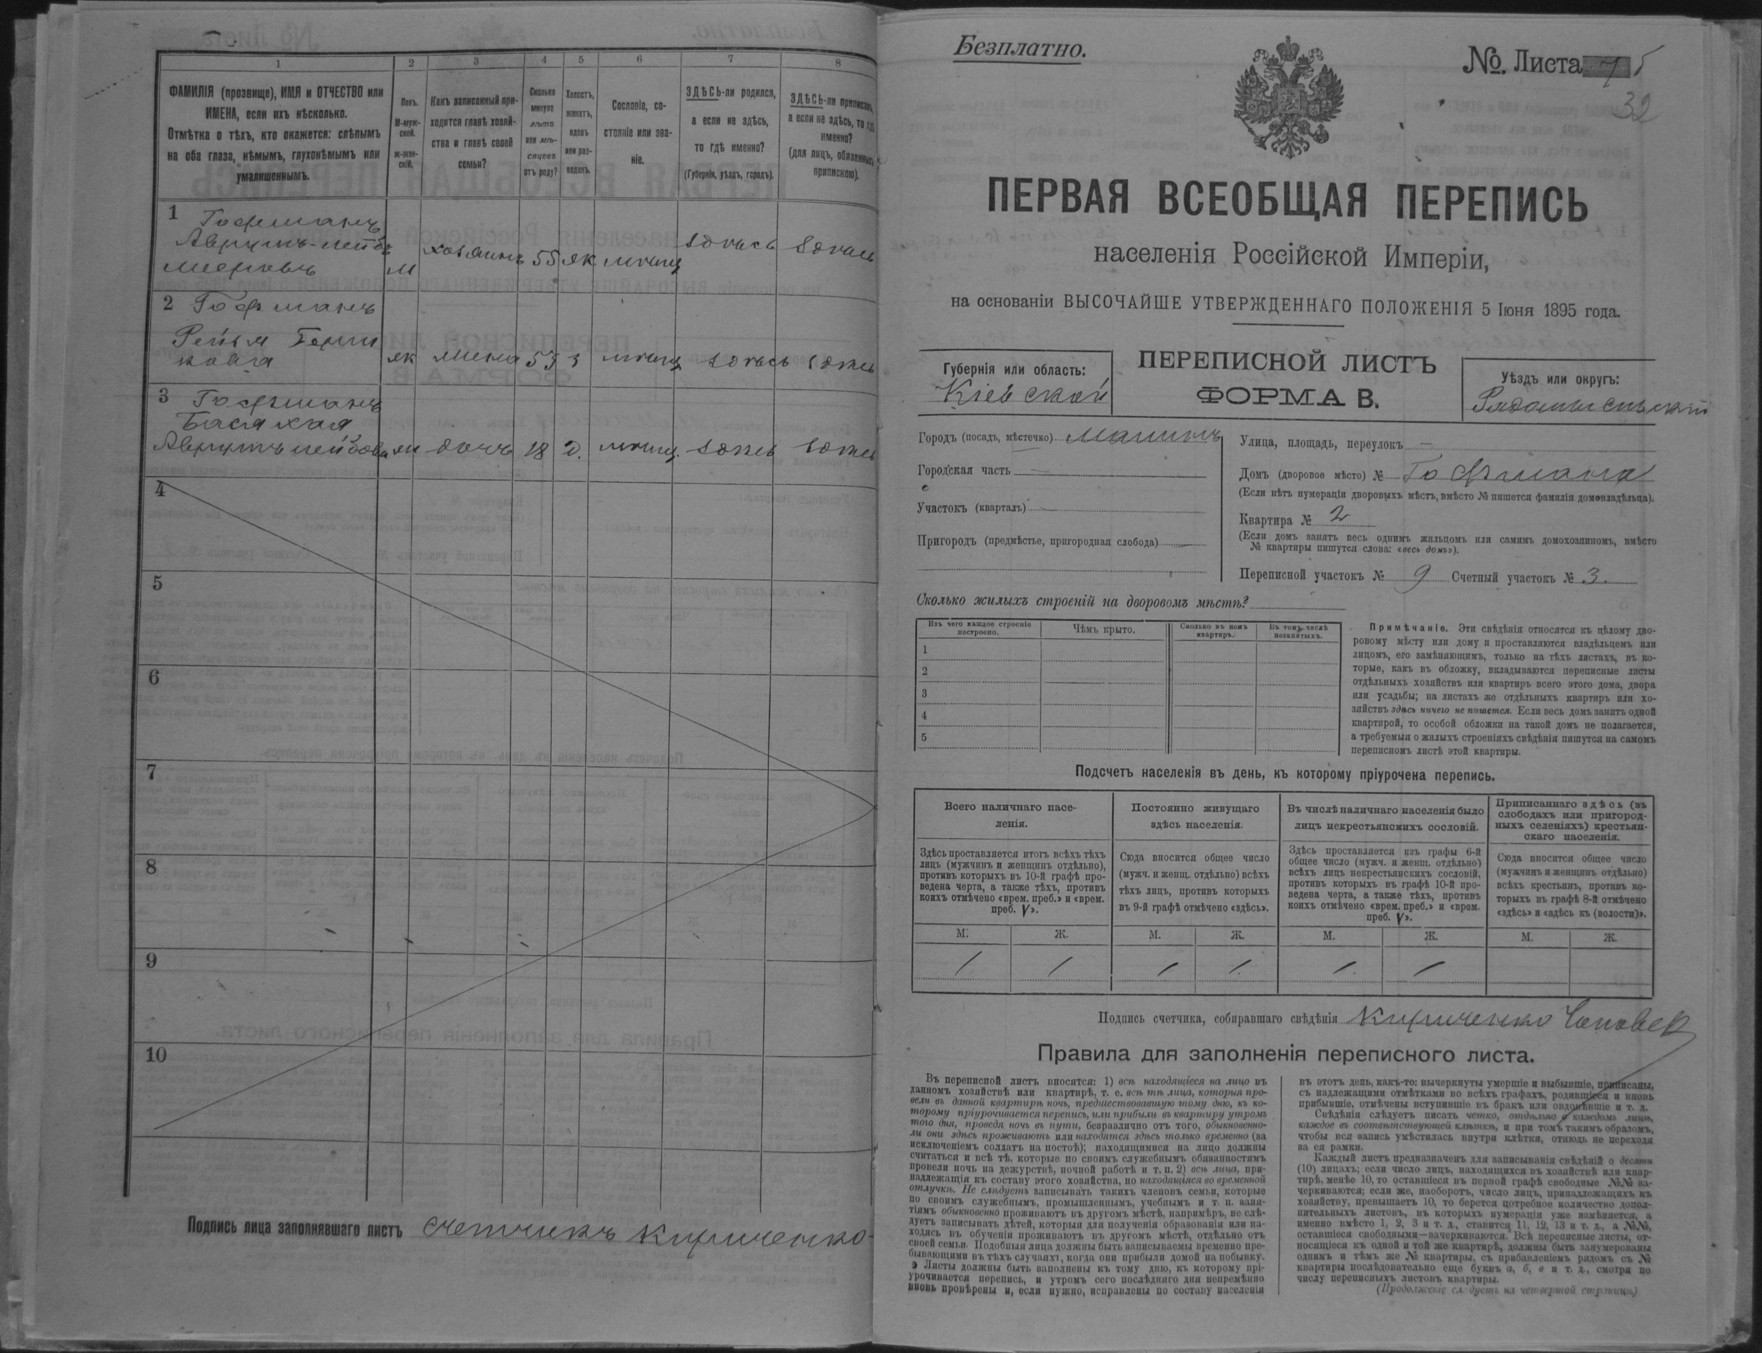 1
2
3
4
5
6
7
8
ФАМИЛІЯ (прозвище), ИМЯ и ОТЧЕСТВО или
ИМЕНА, если ихъ нѣсколько.
Отмѣтка о тѣхъ, кто окажется: слѣпымъ
на оба глаза, нѣмымъ, глухонѣмымъ или
умалишеннымъ.
Полъ.
М-муж-
ской.
Ж-жен-
скій.
Какъ записанный при-
ходится главѣ хозяй-
ства и главѣ своей
семьи?
Сколько
минуло
лѣтъ
или мѣ-
сяцевъ
отъ роду?
Холостъ,
женатъ,
вдовъ
или раз-
веденъ.
Сословіе, со-
стояніе или зва-
ніе.
ЗДѢСЬ-ли родился,
а если не здѣсь,
то гдѣ именно?
(Губернія, уѣздъ, городъ).
ЗДѢСЬ-ли приписанъ,
а если не здѣсь, то гдѣ
именно?
(для лицъ, обязанныхъ
припискою).
1 Гофманъ
М хозяинъ 55 мѣщ здѣсь
2 Гофманъ
жена 53 мѣщ здѣсь
3 Гофманъ
Бася Хая
дочь 18 д. мѣщ. здѣсь здѣсь
4
5
6
7
8
9
10
Подпись лица заполнявшаго листъ счетчикъ Кириченко
Безплатно.
№. Листа 5
32
ПЕРВАЯ ВСЕОБЩАЯ ПЕРЕПИСЬ
населенія Россійской Имперіи,
на основаніи ВЫСОЧАЙШЕ УТВЕРЖДЕННАГО ПОЛОЖЕНІЯ 5 Іюня 1895 года.
Губернія или область:
Кіевской
ПЕРЕПИСНОЙ ЛИСТЪ
ФОРМА В.
Уѣздъ или округъ:
Радомысльскій
Городъ (посадъ, мѣстечко) Малинъ
Городская часть
Участокъ (кварталъ)
Пригородъ (предмѣстье, пригородная слобода)
Улица, площадь, переулокъ —
Домъ (дворовое мѣсто) № Гофмана
(Если нѣтъ нумераціи дворовыхъ мѣстъ, вмѣсто № пишется фамилія домовладѣльца).
Квартира № 2
(Если домъ занятъ весь однимъ жильцомъ или самимъ домохозяиномъ, вмѣсто
№ квартиры пишутся слова: «весь домъ»).
Переписной участокъ № 9 Счетный участокъ № 3.
Сколько жилыхъ строеній на дворовомъ мѣстѣ?
Изъ чего каждое строеніе
построено.
Чѣмъ крыто.
Сколько въ немъ
квартиръ.
Въ томъ числѣ
незанятыхъ.
1
2
3
4
5
Примѣчаніе. Эти свѣдѣнія относятся къ цѣлому дво-
ровому мѣсту или дому и проставляются владѣльцемъ или
лицомъ, его замѣняющимъ, только на тѣхъ листахъ, въ ко-
торые, какъ въ обложку, вкладываются переписные листы
отдѣльныхъ хозяйствъ или квартиръ всего этого дома, двора
или усадьбы; на листахъ же отдѣльныхъ квартиръ или хо-
зяйствъ здѣсь ничего не пишется. Если весь домъ занятъ одной
квартирой, то особой обложки на такой домъ не полагается,
а требуемыя о жилыхъ строеніяхъ свѣдѣнія пишутся на самомъ
переписномъ листѣ этой квартиры.
Подсчетъ населенія въ день, къ которому пріурочена перепись.
Всего наличнаго насе-
ленія.
Здѣсь проставляется итогъ всѣхъ тѣхъ
лицъ (мужчинъ и женщинъ отдѣльно),
противъ которыхъ въ 10-й графѣ про-
ведена черта, а также тѣхъ, противъ
коихъ отмѣчено «врем. преб.» и «врем.
преб. V».
Постоянно живущаго
здѣсь населенія.
Сюда вносится общее число
(мужч. и женщ. отдѣльно) всѣхъ
тѣхъ лицъ, противъ которыхъ
въ 9-й графѣ отмѣчено «здѣсь».
Въ числѣ наличнаго населенія было
лицъ некрестьянскихъ сословій.
Здѣсь проставляется изъ графы 6-й
общее число (мужч. и женщ. отдѣльно)
всѣхъ лицъ некрестьянскихъ сословій,
противъ которыхъ въ графѣ 10-й про-
ведена черта, а также тѣхъ, противъ
коихъ отмѣчено «врем. преб.» и «врем.
преб. V».
Приписаннаго здѣсь (въ
слободахъ или пригород-
ныхъ селеніяхъ) крестьян-
скаго населенія.
Сюда вносится общее число
(мужчинъ и женщинъ отдѣльно)
всѣхъ крестьянъ, противъ ко-
торыхъ въ графѣ 8-й отмѣчено
«здѣсь» и «здѣсь къ (волости)».
М. Ж. М. Ж. М. Ж. М. Ж.
1 1 1 1 1 1
Подпись счетчика, собиравшаго свѣдѣнія Кириченко
Правила для заполненія переписного листа.
Въ переписной листъ вносятся: 1) всѣ находящіеся на лицо въ
данномъ хозяйствѣ или квартирѣ, т. е. всѣ тѣ лица, которыя про-
вели въ данной квартирѣ ночь, предшествовавшую тому дню, къ ко-
торому пріурочивается перепись, или прибыли въ квартиру утромъ
того дня, проведя ночь въ пути, безразлично отъ того, обыкновенно-
ли они здѣсь проживаютъ или находятся здѣсь только временно (за
исключеніемъ солдатъ на постоѣ); находящимися на лицо должны
считаться и всѣ тѣ, которые по своимъ служебнымъ обязанностямъ
провели ночь на дежурствѣ, ночной работѣ и т. п. 2) всѣ лица, при-
надлежащія къ составу этого хозяйства, но находящіяся во временной
отлучкѣ. Не слѣдуетъ записывать такихъ членовъ семьи, которые
по своимъ служебнымъ, промышленнымъ, учебнымъ и т. п. заня-
тіямъ обыкновенно проживаютъ въ другомъ мѣстѣ, напримѣръ, не слѣ-
дуетъ записывать дѣтей, которыя для полученія образованія или на-
ходясь въ обученіи проживаютъ въ другомъ мѣстѣ, отдѣльно отъ
своей семьи. Подобныя лица должны быть записываемы временно пре-
бывающими въ тѣхъ случаяхъ, когда они прибыли домой на побывку.
Листы должны быть заполнены къ тому дню, къ которому прі-
урочивается перепись, и утромъ сего послѣдняго дня непремѣнно
вновь провѣрены и, если нужно, исправлены по составу населенія
въ этотъ день, какъ-то: вычеркнуты умершіе и выбывшіе, приписаны,
съ надлежащими отмѣтками во всѣхъ графахъ, родившіеся и вновь
прибывшіе, отмѣчены вступившіе въ бракъ или овдовѣвшіе и т. д.
Свѣдѣнія слѣдуетъ писать четко, отдѣльно о каждомъ лицѣ,
каждое въ соотвѣтствующей клѣткѣ, и при томъ такимъ образомъ,
чтобы вся запись умѣстилась внутри клѣтки, отнюдь не переходя
за ея рамки.
Каждый листъ предназначенъ для записыванія свѣдѣній о десяти
(10) лицахъ; если число лицъ, находящихся въ хозяйствѣ или квар-
тирѣ, менѣе 10, то оставшіеся въ первой графѣ свободные №№ за-
черкиваются; если же, наоборотъ, число лицъ, принадлежащихъ къ
хозяйству, превышаетъ 10, то берется потребное количество допол-
нительныхъ листовъ, въ которыхъ нумерація уже измѣняется, а
именно вмѣсто 1, 2, 3 и т. д., ставится 11, 12, 13 и т. д., а №№,
оставшіеся свободными—зачеркиваются. Всѣ переписные листы, от-
носящіеся къ одной и той же квартирѣ, должны быть занумерованы
однимъ и тѣмъ же № квартиры, съ прибавленіемъ рядомъ съ №
квартиры послѣдовательно еще буквъ а, б, в и т. д., смотря по
числу переписныхъ листовъ квартиры.
(Продолженіе слѣдуетъ на четвертой страницѣ)